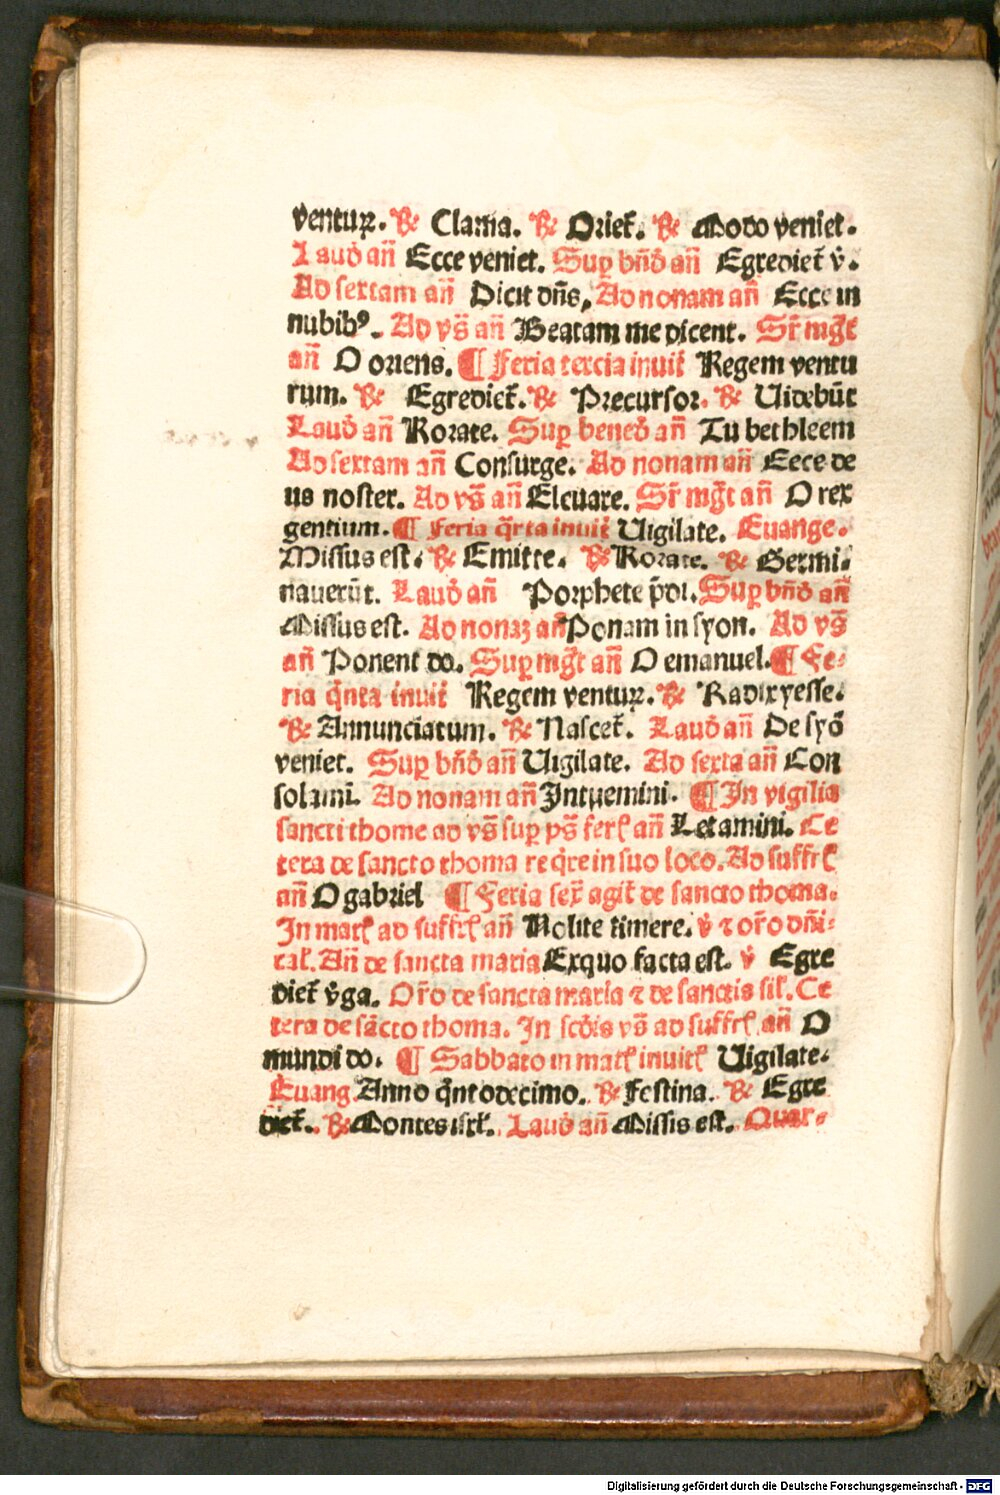 ventuꝝ. ℟ Clama. ℟ Oriet̄. ℟ Modo veniet.
Laud̄ an̄ Ecce veniet. Suꝑ bn̄d̄ an̄ Egrediet̄ v̄.
Ad sextam an̄ Dicit dn̄s, Ad nonam an̄ Ecce in
nubibꝰ. Ad vs̄ an̄ Beatam me dicent. Sr̄ mgt̄
an̄ O oriens. ¶ Feria tercia inuit̄ Regem ventu
rum. ℟ Egrediet̄. ℟ Precursor. ℟ Uidebūt
Laud̄ an̄ Rorate. Suꝑ bened̄ an̄ Tu bethleem
Ad sextam an̄ Consurge. Ad nonam an̄ Eece de
us noster. Ad vs̄ an̄ Elcuare. Sr̄ mgt̄ an̄ O rex
gentium. ¶ Feria q̄rta inuit̄ Uigilate. Euange.
Missus est. ℟ Emitte. ℟ Rorate. ℟ Germi-
nauerūt. Laud̄ an̄ Porphete p̄di. Suꝑ bn̄d̄ an̄
Missus est. Ad nonaꝫ an̄ Ponam in syon. Ad vs̄
an̄ Ponent do. Suꝑ mgt̄ an̄ O emanuel. ¶ Fe-
ria q̄nta inuit̄ Regem ventuꝝ. ℟ Radix yesse.
℟ Annunciatum. ℟ Nascet̄. Laud̄ an̄ De syō
veniet. Suꝑ bn̄d̄ an̄ Uigilate. Ad sexta an̄ Con
solami. Ad nonam an̄ Intuemini. ¶ In vigilia
sancti thome ad vs̄ suꝑ ps̄ ferꝭ an̄ Letamini. Ce
tera de sancto thoma req̄re in suo loco. Ad suffrꝭ
an̄ O gabriel ¶ Feria sex̄ agit̄ de sancto thoma.
In matꝭ ad suffrꝭ an̄ Nolite timere. v̄ ⁊ or̄o dn̄i-
cal̄. An̄ de sancta maria Exquo facta est. v̄ Egre
diet̄ v̄ga. Or̄o de sancta maria ⁊ de sanctis sil̄. Ce
tera de sācto thoma. In scd̄is vs̄ ad suffrꝭ an̄ O
mundi do. ¶ Sabbato in matꝭ inuitꝭ Uigilate.
Euang Anno q̄ntodecimo. ℟ Festina. ℟ Egre
diet̄. ℟ Montes isrl̄. Laud̄ an̄ Missis est. Quar-
Digitalisierung gefördert durch die Deutsche Forschungsgemeinschaft - DFG